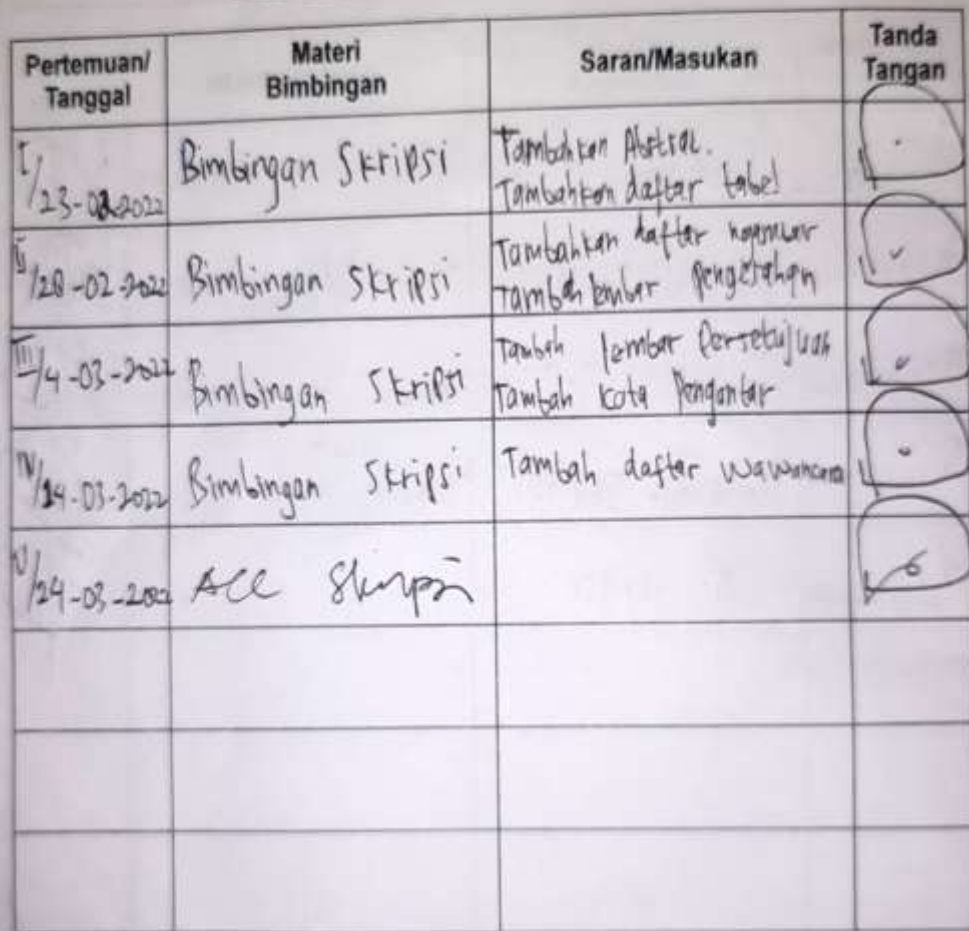 Pertemuan/
Tanggal
Materi
Bimbingan
Saran/Masukan
Tanda
Tangan
I/
23-02-2022
Bimbingan Skripsi
Tambahkan Abstrac.
Tambahkan daftar tabel
II
/28-02-2022
Bimbingan Skripsi
Tambahkan daftar
Tambah lembar Pengesahan
III/4-03-2022
Bimbingan Skripsi
Tambah lembar Persetujuan
Tambah kata Pengantar
IV/14-03-2022
Bimbingan Skripsi
Tambah daftar wawancara
V/24-03-2022
ACC Skripsi